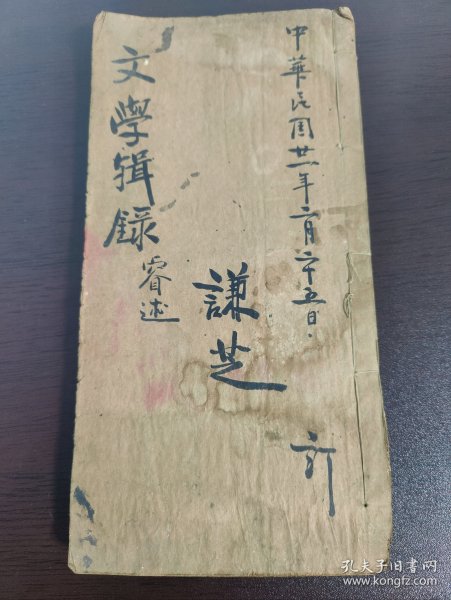 中華民国廿一年二月二十五日.
謙芝 訂
文學辑錄
睿述
孔夫子旧书网
www.kongfz.com